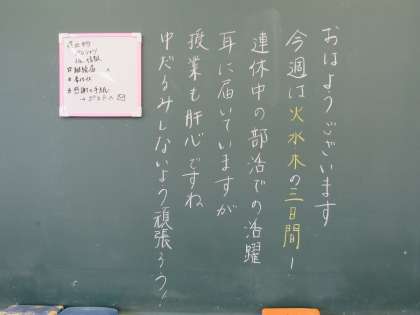 おはようございます
今週は火水木の三日間!
連休中の部活での活躍
耳に届いていますが
授業も肝心ですね
中だるみしないよう頑張ろう!
提出物